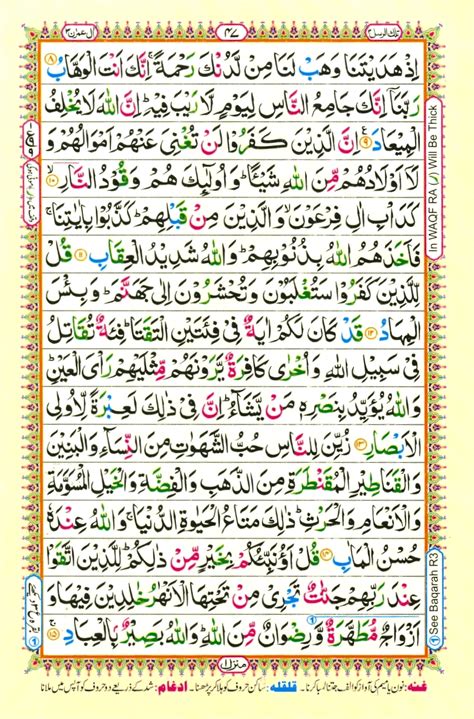 تلك الرسل ٣
٤٧
ال عمرٰن ٣
اِذْ هَدَيْتَنَا وَهَبْ لَنَا مِنْ لَّدُنْكَ رَحْمَةً ۚ اِنَّكَ اَنْتَ الْوَهَّابُ ۝۸
رَبَّنَاۤ اِنَّكَ جَامِعُ النَّاسِ لِيَوْمٍ لَّا رَيْبَ فِيْهِ ؕ اِنَّ اللّٰهَ لَا يُخْلِفُ
الْمِيْعَادَ ۝۹ اِنَّ الَّذِيْنَ كَفَرُوْا لَنْ تُغْنِىَ عَنْهُمْ اَمْوَالُهُمْ وَ
لَاۤ اَوْلَادُهُمْ مِّنَ اللّٰهِ شَيْـًٔا ؕ وَ اُولٰٓئِكَ هُمْ وَقُوْدُ النَّارِ ۝۱۰
كَدَاْبِ اٰلِ فِرْعَوْنَ ۙ وَالَّذِيْنَ مِنْ قَبْلِهِمْ ؕ كَذَّبُوْا بِاٰيٰتِنَا ۚ
فَاَخَذَهُمُ اللّٰهُ بِذُنُوْبِهِمْ ؕ وَاللّٰهُ شَدِيْدُ الْعِقَابِ ۝۱۱ قُلْ
لِّلَّذِيْنَ كَفَرُوْا سَتُغْلَبُوْنَ وَتُحْشَرُوْنَ اِلٰى جَهَنَّمَ ؕ وَبِئْسَ
الْمِهَادُ ۝۱۲ قَدْ كَانَ لَكُمْ اٰيَةٌ فِىْ فِئَتَيْنِ الْتَقَتَا ؕ فِئَةٌ تُقَاتِلُ
فِىْ سَبِيْلِ اللّٰهِ وَاُخْرٰى كَافِرَةٌ يَّرَوْنَهُمْ مِّثْلَيْهِمْ رَاْىَ الْعَيْنِ ؕ
وَاللّٰهُ يُؤَيِّدُ بِنَصْرِهٖ مَنْ يَّشَآءُ ؕ اِنَّ فِىْ ذٰلِكَ لَعِبْرَةً لِّاُولِى
الْاَبْصَارِ ۝۱۳ زُيِّنَ لِلنَّاسِ حُبُّ الشَّهَوٰتِ مِنَ النِّسَآءِ وَالْبَنِيْنَ
وَالْقَنَاطِيْرِ الْمُقَنْطَرَةِ مِنَ الذَّهَبِ وَالْفِضَّةِ وَالْخَيْلِ الْمُسَوَّمَةِ
وَالْاَنْعَامِ وَالْحَرْثِ ؕ ذٰلِكَ مَتَاعُ الْحَيٰوةِ الدُّنْيَا ۚ وَاللّٰهُ عِنْدَهٗ
حُسْنُ الْمَاٰبِ ۝۱۴ قُلْ اَؤُنَبِّئُكُمْ بِخَيْرٍ مِّنْ ذٰلِكُمْ ؕ لِلَّذِيْنَ اتَّقَوْا
عِنْدَ رَبِّهِمْ جَنّٰتٌ تَجْرِىْ مِنْ تَحْتِهَا الْاَنْهٰرُ خٰلِدِيْنَ فِيْهَا وَ
اَزْوَاجٌ مُّطَهَّرَةٌ وَّ رِضْوَانٌ مِّنَ اللّٰهِ ؕ وَاللّٰهُ بَصِيْرٌۢ بِالْعِبَادِ ۝۱۵
In WAQF RA (ر) Will Be Thick
See Baqarah R3
منزل ۱
غنه: نون یا میم کی آواز کو الف جتنا لمبا کرنا۔ قلقله: ساکن حروف کو ہلا کر پڑھنا۔ ادغام: شد کے ذریعے دو حروف کو آپس میں ملانا